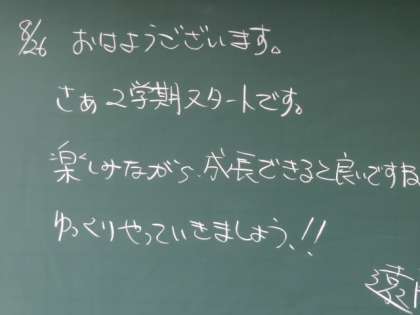 8/26 おはようございます。
さぁ2学期スタートです。
楽しみながら、成長できると良いですね
ゆっくりやっていきましょう、!!